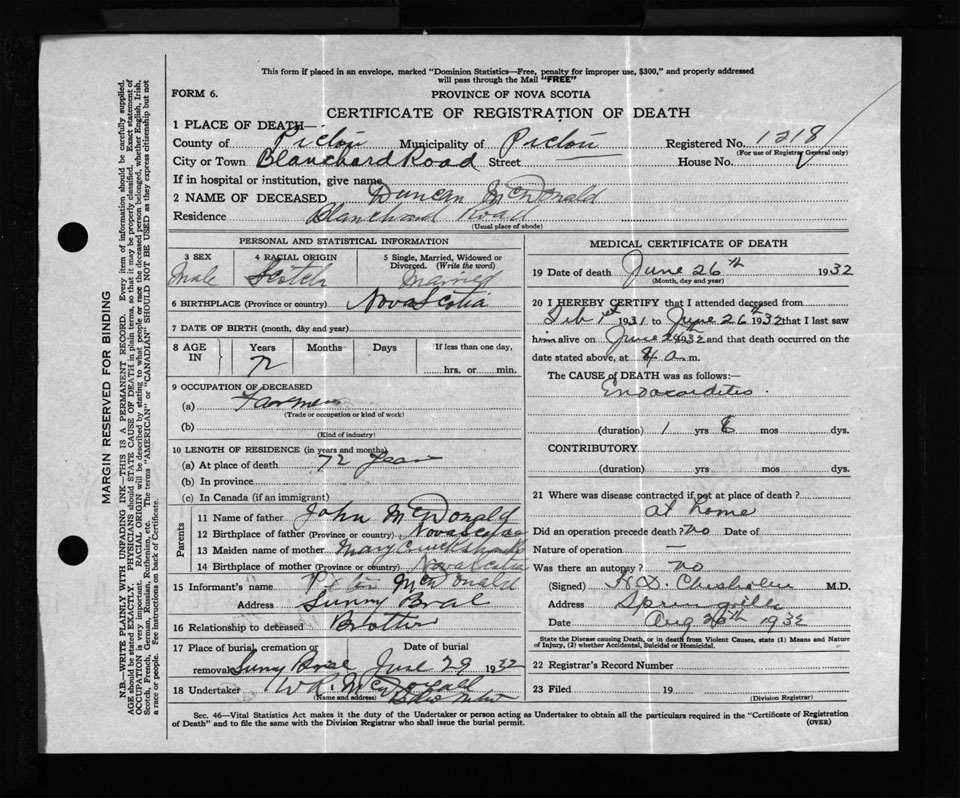 This form if placed in an envelope, marked "Dominion Statistics—Free, penalty for improper use, $300," and properly addressed
will pass through the Mail "FREE"
FORM 6. PROVINCE OF NOVA SCOTIA
CERTIFICATE OF REGISTRATION OF DEATH
1 PLACE OF DEATH—
County of Pictou Municipality of Pictou Registered No. 1218
(For use of Registrar General only)
City or Town Blanchard Road Street House No.
If in hospital or institution, give name
2 NAME OF DECEASED Duncan McDonald
Residence Blanchard Road
(Usual place of abode)
PERSONAL AND STATISTICAL INFORMATION
3 SEX 4 RACIAL ORIGIN 5 Single, Married, Widowed or Divorced. (Write the word)
Male Scotch Married
6 BIRTHPLACE (Province or country) Nova Scotia
7 DATE OF BIRTH (month, day and year)
8 AGE IN Years Months Days If less than one day,
72 hrs. or min.
9 OCCUPATION OF DECEASED
(a) Farmer
(Trade or occupation or kind of work)
(b)
(Kind of industry)
10 LENGTH OF RESIDENCE (in years and months)
(a) At place of death 72 Years
(b) In province
(c) In Canada (if an immigrant)
Parents
11 Name of father John McDonald
12 Birthplace of father (Province or country) Nova Scotia
13 Maiden name of mother Mary Cruickshanks
14 Birthplace of mother (Province or country) Nova Scotia
15 Informant's name McDonald
Address Sunny Brae
16 Relationship to deceased Brother
17 Place of burial, cremation or removal Sunny Brae Date of burial June 29 1932
18 Undertaker W R
(Name and address)
MEDICAL CERTIFICATE OF DEATH
19 Date of death June 26th 1932
(Month, day and year)
20 I HEREBY CERTIFY that I attended deceased from
Feb 1st 1931 to June 26th 1932 that I last saw
him alive on June 1932 and that death occurred on the
date stated above, at a.m.
The CAUSE of DEATH was as follows:—
Endocarditis
(duration) 1 yrs 8 mos dys.
CONTRIBUTORY
(duration) yrs. mos. dys.
21 Where was disease contracted if not at place of death?
at home
Did an operation precede death? no Date of
Nature of operation —
Was there an autopsy? no
(Signed) H.D. Chisholm M.D.
Address Springville
Date Aug 1932
State the Disease causing Death, or in death from Violent Causes, state (1) Means and Nature of Injury, (2) whether Accidental, Suicidal or Homicidal.
22 Registrar's Record Number
23 Filed 19
(Division Registrar)
Sec. 46—Vital Statistics Act makes it the duty of the Undertaker or person acting as Undertaker to obtain all the particulars required in the "Certificate of Registration
of Death" and to file the same with the Division Registrar who shall issue the burial permit. (OVER)
MARGIN RESERVED FOR BINDING
N.B.—WRITE PLAINLY WITH UNFADING INK—THIS IS A PERMANENT RECORD. Every item of information should be carefully supplied.
AGE should be stated EXACTLY. PHYSICIANS should STATE CAUSE OF DEATH in plain terms, so that it may be properly classified. Exact statement of
OCCUPATION is very important. RACIAL ORIGIN will be described by stating to what people or race the deceased person belonged, whether English, Irish,
Scotch, French, German, Russian, Ruthenian, etc. The terms "AMERICAN" or "CANADIAN" SHOULD NOT BE USED as they express citizenship but not
a race or people. See instructions on back of Certificate.